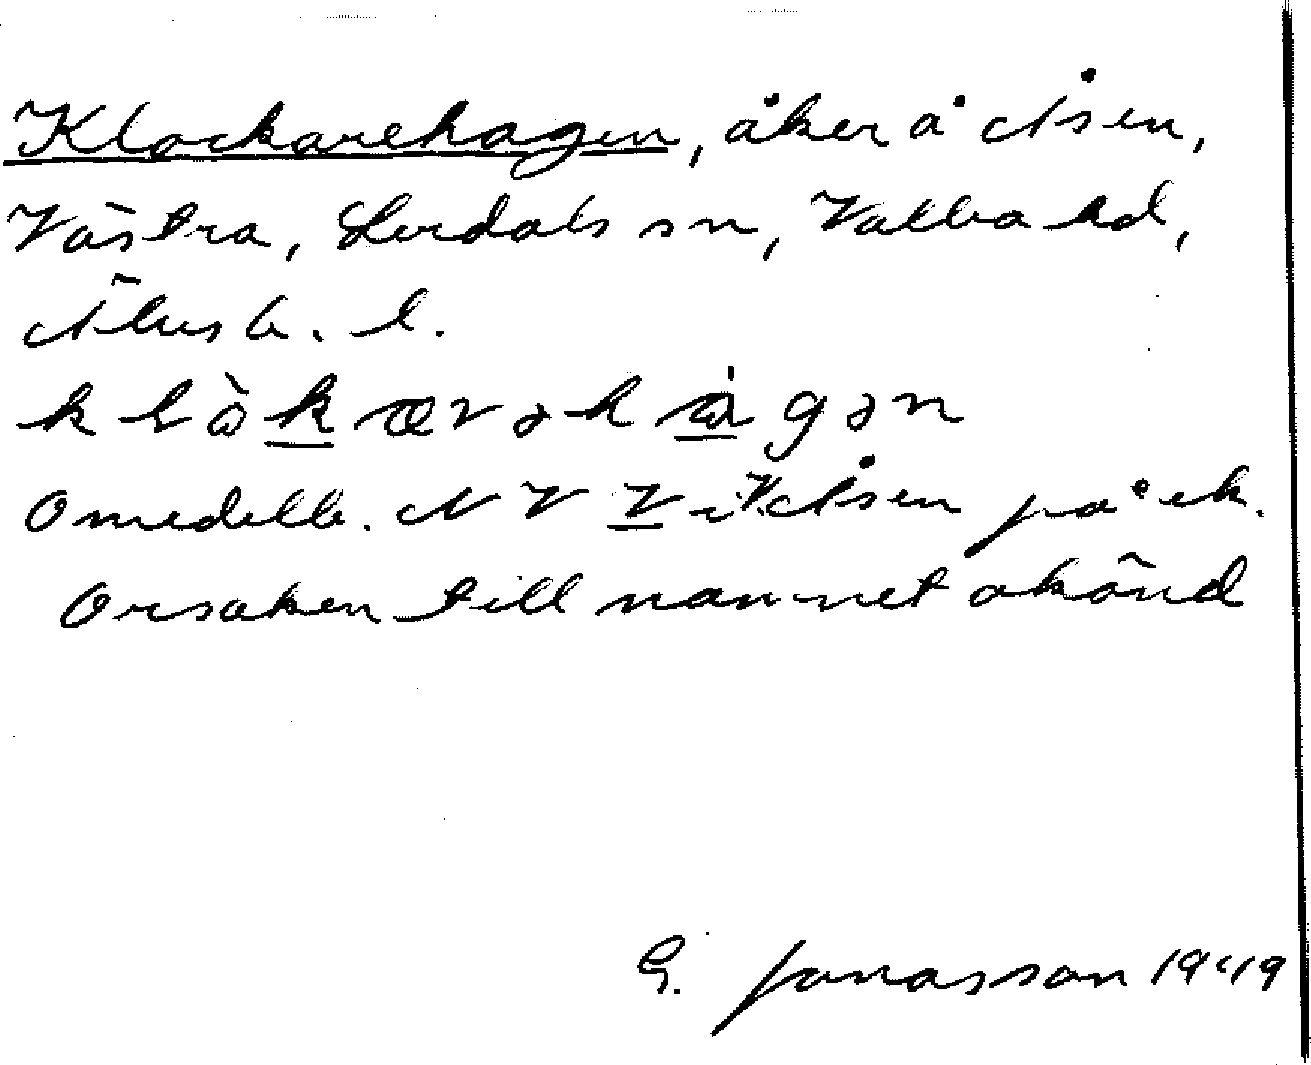 Klockarehagen, åker å Åsen,
Västra, Lerdals sn, Valbo hd,
Älvsb. l.
klòkarəhàgən
Omedelb. NV V. Åsen på ek.
Orsaken till namnet okänd
G. Jonasson 1949